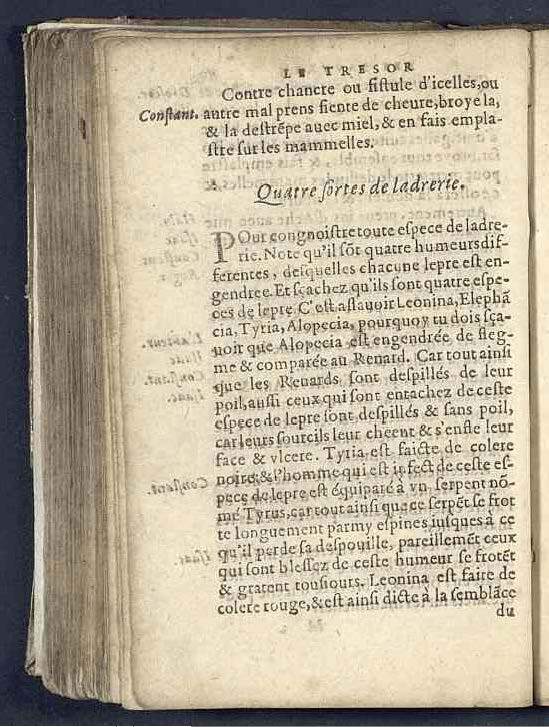 LE TRESOR
Contre chancre ou fistule d'icelles,ou
Constant. autre mal prens fiente de cheure,broye la,
& la destrẽpe auec miel,& en fais empla-
stre sur les mammelles.
Quatre sortes de ladrerie.
POur congnoistre toute espece de ladre-
rie. Note qu'il sõt quatre humeurs dif-
ferentes, desquelles chacune lepre est en-
gendree. Et sçachez qu'ils sont quatre espe-
ces de lepre. C'est assauoir Leonina, Elephã
cia, Tyria, Alopecia, pourquoy tu dois sça-
uoir que Alopecia est engendrée de fleg-
me & comparée au Renard. Car tout ainsi
que les Renards sont despillés de leur
poil,aussi ceux qui sont entachez de ceste
espece de lepre sont despillés & sans poil,
car leurs sourcils leur cheent & s'enfle leur
face & vlcere. Tyria est faicte de colere
noire;& l'homme qui est infect de ceste es-
pece de lepre est équiparé à vn serpent nõ-
mé Tyrus,car tout ainsi que ce serpẽt se frot
te longuement parmy espines iusques à ce
qu'il perde sa despouille, pareillemẽt ceux
qui sont blessez de ceste humeur se frotẽt
& gratent tousiours. Leonina est faite de
colere rouge,& est ainsi dicte à la semblãce
du